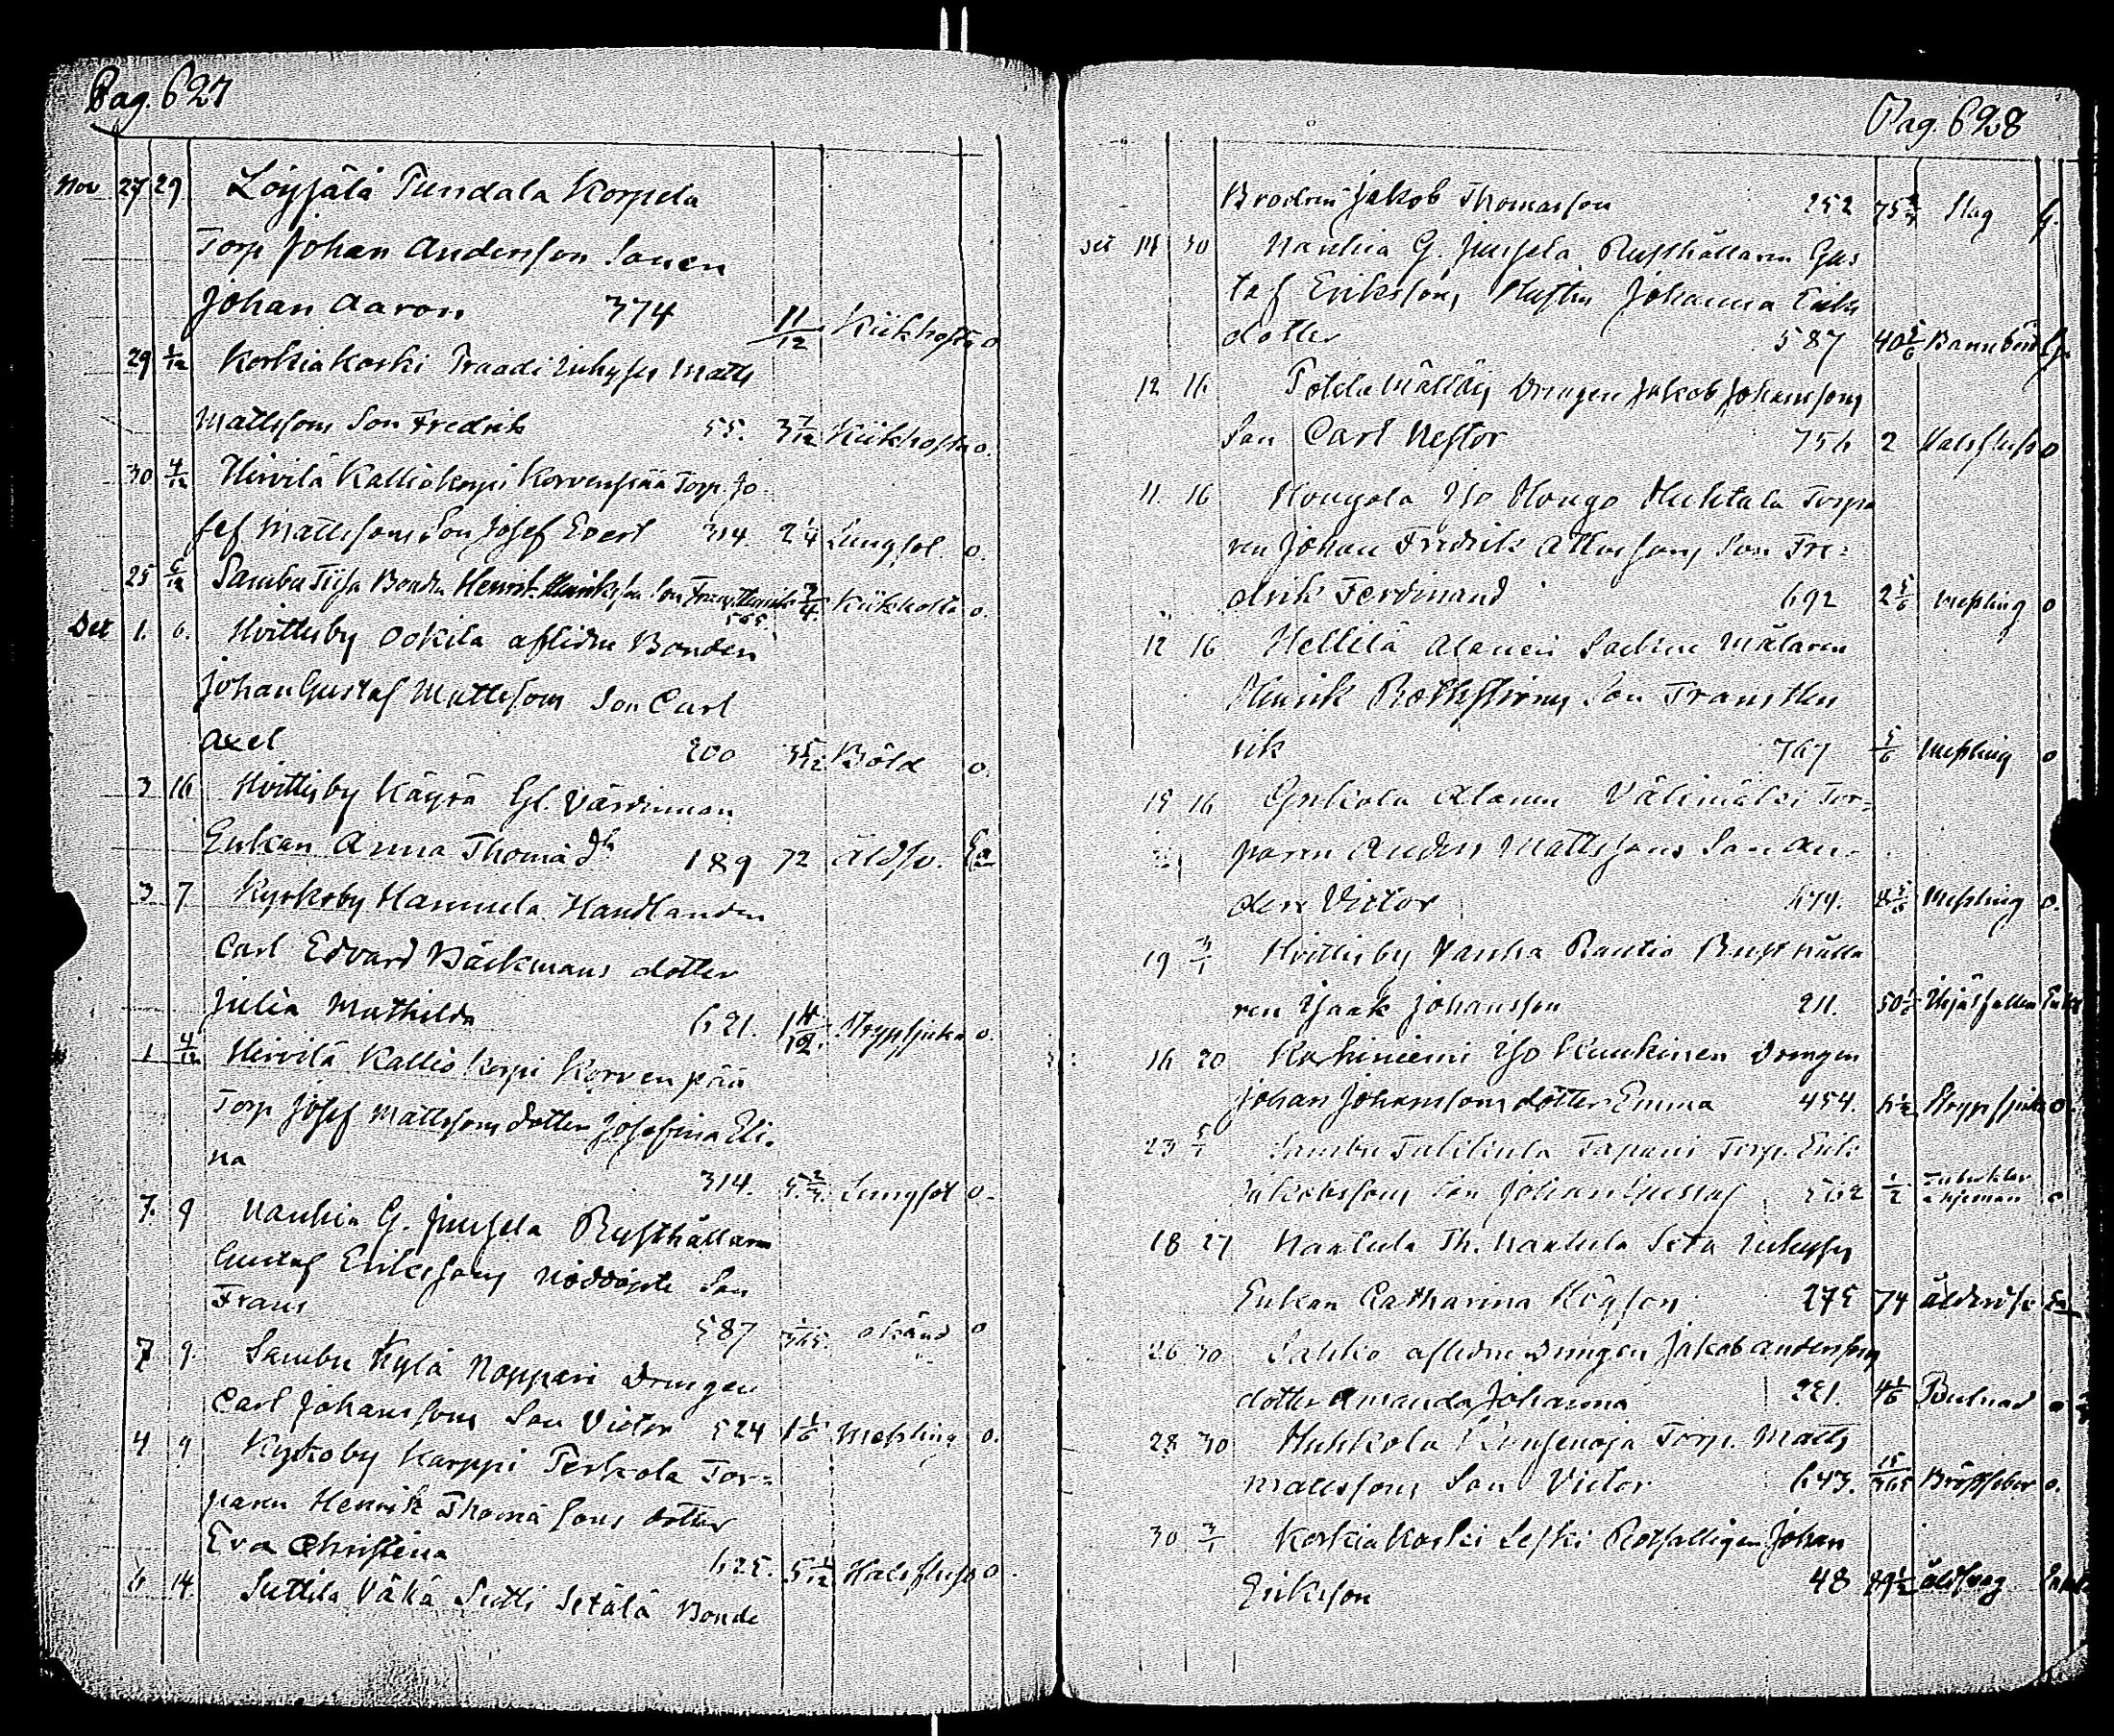 Pag. 627
Nov 27 29 Löysälä Tundala Korpela
Torp Johan Andersson Sonen
Johan Aaron 374 11/12 Kikhosta o
29 1/12 Korkiakoski Inhyses Matts
Mattssons Son Fredrik 55. 3 7/12 Kikhosta o.
30 4/12 Hirvilä Kalliokorpi Korvenpää Torp. Jo-
sef Mattssons Son Josef Evert 314. 2 1/4 Lungsot. o.
25 6/12 Sambu Tiisa Bonden Henrik Henrikssons Son Frans Henrik 565. 3/4. Kikhosta o.
Det 1. 6. Hvittisby Ookila aflidne Bonden
Johan Gustaf Mattssons Son Carl
Axel 200 3 5/12 Böld o.
3 16 Hvittisby Käyrä Gl. Värdinnan
Enkan Anna Thomä dr 189 72 Åldsv. Ea
3 7 Kyrkoby Hannula Handlanden
Carl Edvard Bäckmans dotter
Julia Mathilda 621. 1 11/12. Strypsjuka o.
1 4/12 Hirvilä Kalliokorpi Korvenpää
Torp Josef Mattssons dotter Josefina Eli-
na 314. 5 2/3. Lungsot o.
7. 9 Nanhia G. Junsela Rusthållaren
Gustaf Erikssons Nöddöpte Son
Frans 587 1/365. okänd o
7 9. Sambu Kylä Noppari Drengen
Carl Johanssons Son Victor 524 1 1/6 Messling o.
4 9 Kyrkoby Karppi Perkola Tor-
paren Henrik Thomä Sons dotter
Eva Christina 625. 5 1/12 Halsfluss o.
6 14. Suttila Väkä Sutti Setälä Bonde
Pag. 628
Brodren Jakob Thomasson 252 75 Slag G.
Det 14 30 Nanhia G. Junsela Rusthållaren Gus
taf Erikssons Hustru Johanna Eriks
dotter 587 40 5/6 Barnsbörd G.
12 16 Drengen Jakob Johanssons
Son Carl Nestor 756 2 Halsfluss o
11. 16 Hongola Iso Hongo Huhtala Torpa
ren Johan Fredrik Son Fre-
drik Ferdinand 692 2 5/6 Messling o
12 16 Hellilä Alanen Målaren
Henrik Son Frans Hen
rik 767 5/6 Messling o
19 16 Alanen Välimäki Tor-
paren Anders Mattssons Son An-
ders Victor 674. Messling o.
19 3/1 Hvittisby Vanha Rautio Rusthålla
ren Isaak Johansson 211. 50 1/6 Ihjälfallen
16 20 Karhiniemi Iso Kuukinen Drengen
Johan Johanssons dotter Emma 454. 6 1/2 Strypsjuka o.
23 5/1 Sambu Talikula Tapani Torp. Erik
Jakobssons Son Johan Gustaf 562 1/2 o
18 27 Nantula Th. Nantula Seta Inhyses
Enkan Catharina Högson 275 74 Ålderdsv. Ea
26 30 Sahko aflidne Drengen Jakob Anderssons
dotter Amanda Johanna 221. 4 1/6 Bulnad o
28 30 Huhkola Torp. Matts
Mattssons Son Victor 643. 15/365 Bröstfeber o.
30 3/1 Korkiakoski Leski Rotfattigen Johan
Eriksson 48 89 1/2 Åldsvag